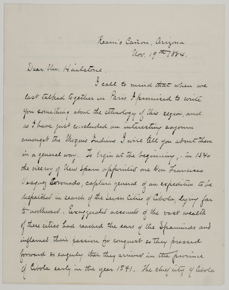 Keam's Cañon, Arizona
Nov. 19th, 1884.
Dear Mr.
I call to mind that when we
last talked together in Paris I promised to write
you something about the ethnology of this region, and
as I have just concluded an interesting sojourn
amongst the Moquis Indians I will tell you about them
in a general way. To begin at the beginning, in 1540
the viceroy of New Spain appointed one Don Francisco
Vasquez Coronado, captain general of an expedition to be
despatched in search of the Seven Cities of Cibola lying far
to northward. Exaggerated accounts of the vast wealth
of these cities had reached the ears of the Spaniards and
inflamed their passion for conquest so they pressed
forward so eagerly that they arrived in the province
of Cibola early in the year 1541. The chief city of Cibola